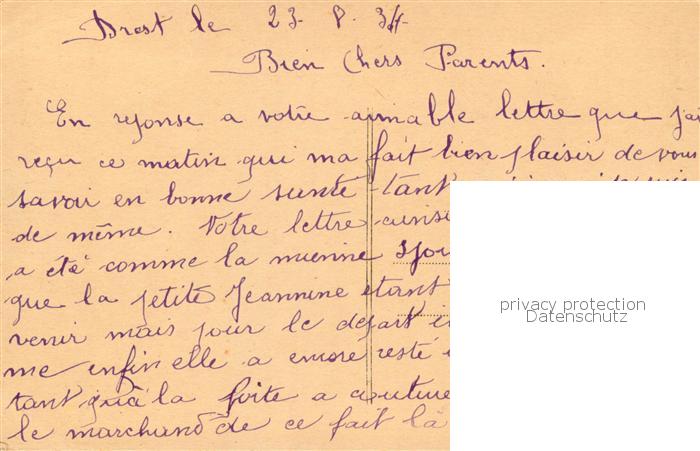 Brest le 23. 8. 34
Bien Chers Parents.
En reponse a votre aimable lettre que j'ai
reçu ce matin qui ma fait bien plaisir de vous
savoir en bonne sante tant
de même. Votre lettre
a été comme la mienne
que la petite Jeannine etant
venir mais pour le depart
me enfin elle a encore resté
tant qu'à la
le marchand de ce fait là
privacy protection
Datenschutz